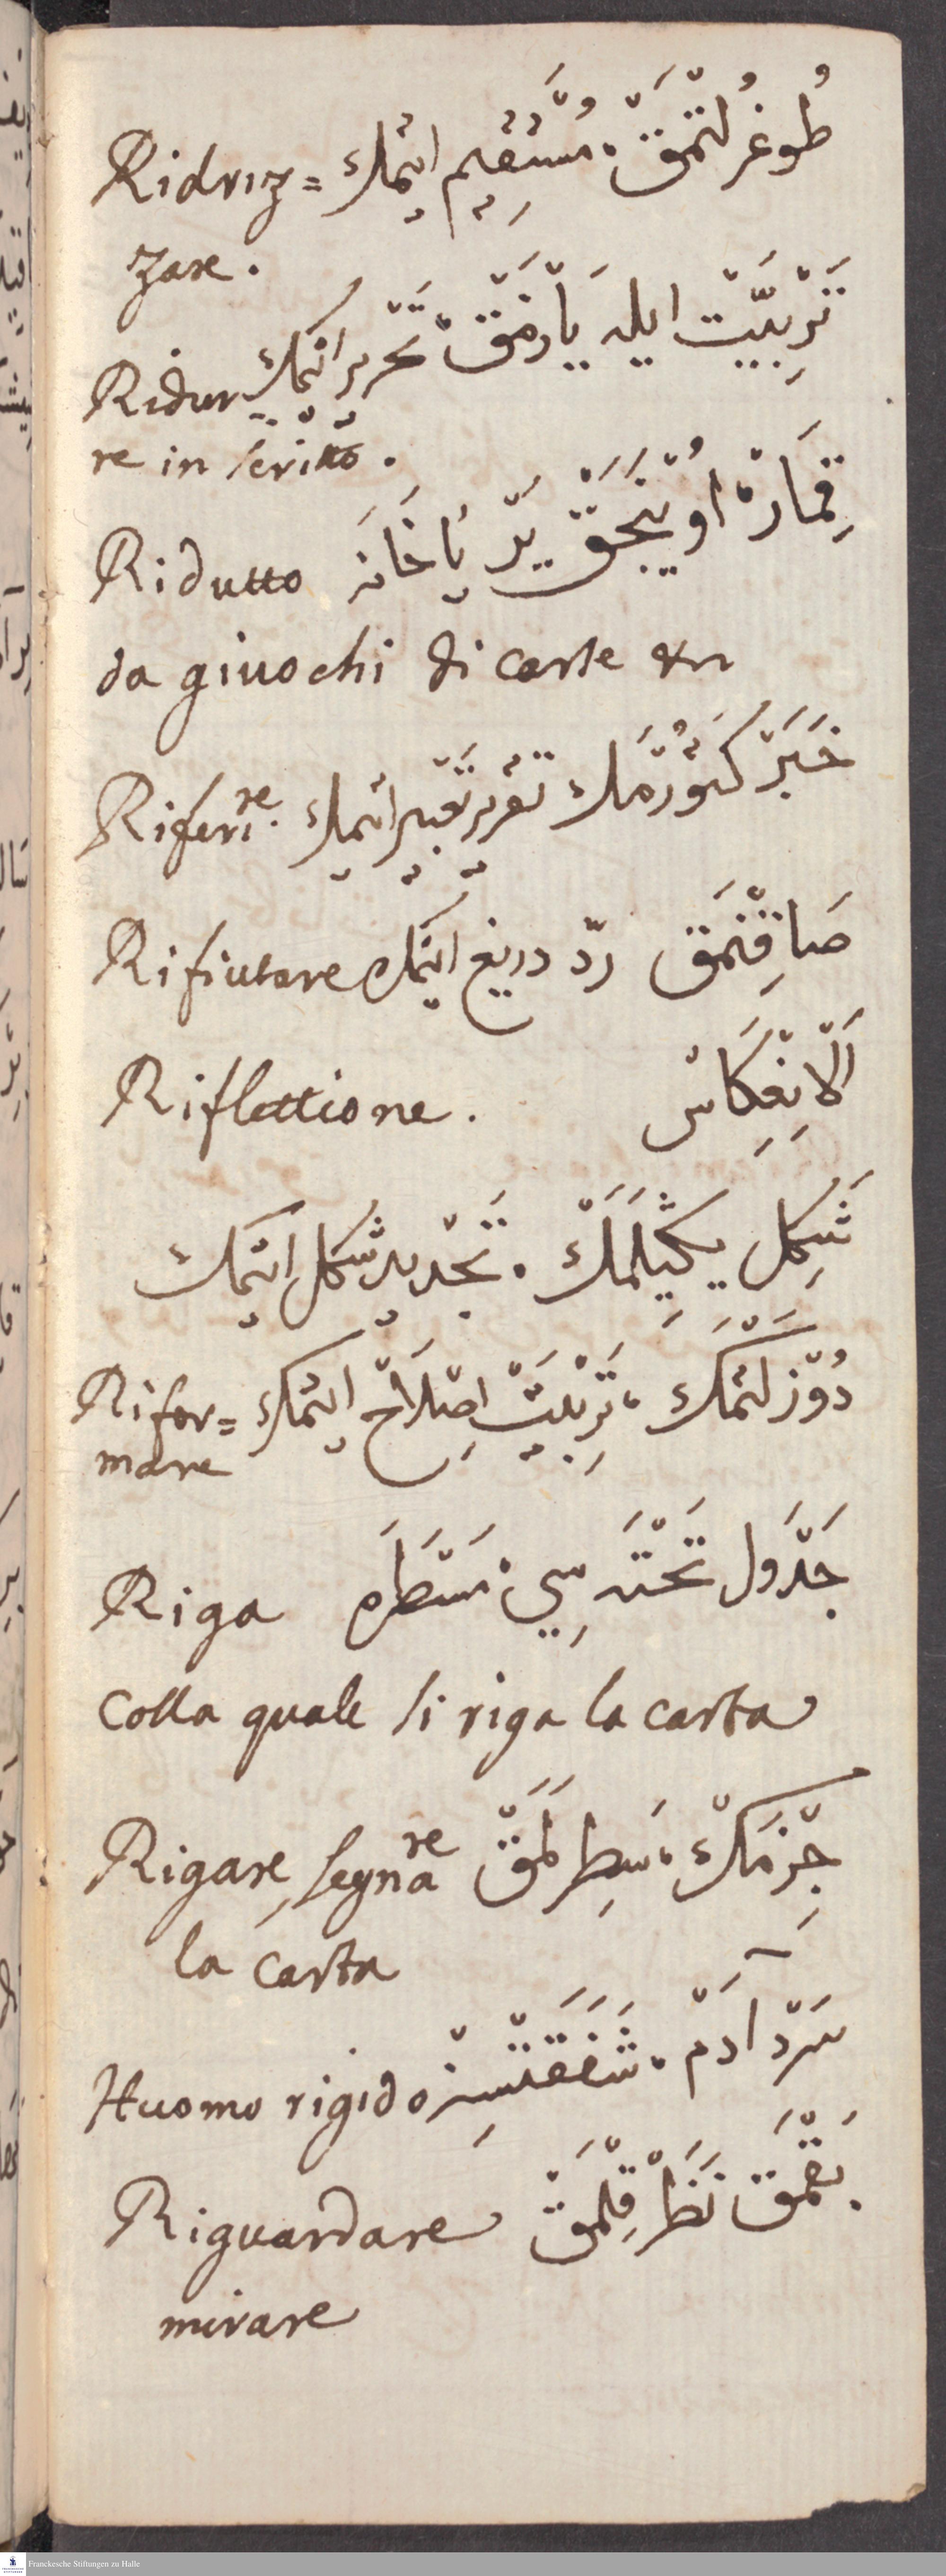 Ridriz= طُوغرُلتمَقْ، مُسْتَقِيم ايتمك
zare.
Ridur تَرْبِيَّت ايله يَازمَقْ تَحْرِير ايتمك
re in scritto.
Ridutto قِمَارْ اُويْنَجَقْ يَرْ يَاخَانَه
da giuochi di carte &c
Riferire. خَبَرْ كَتُورْمَك تَقْرِير تَعْبِير ايتمك
Rifiutare صَاقِنْمَق ردّ دريغ ايتمك
Riflettione. اَلْاِنْعِكَاسْ
شَكِل يكِيلَمَكْ، تَجْدِيد شكل ايتمك
Rifor= دُوزْلَتْمَكْ، تَرْبِيَتْ اِصْلَاحْ ايتمك
mare
Riga جَدْوَل تَخْتَه سِي، مَسْطَره
colla quale si riga la carta
Rigare, segnare چِزْمَكْ، سَطِرلَمَقْ
la carta
Huomo rigido سَرْد آدَمْ، شَفَقَتْسِزْ
Riguardare بَقْمَق نَظَرْ قِلْمَقْ
mirare
Franckesche Stiftungen zu Halle